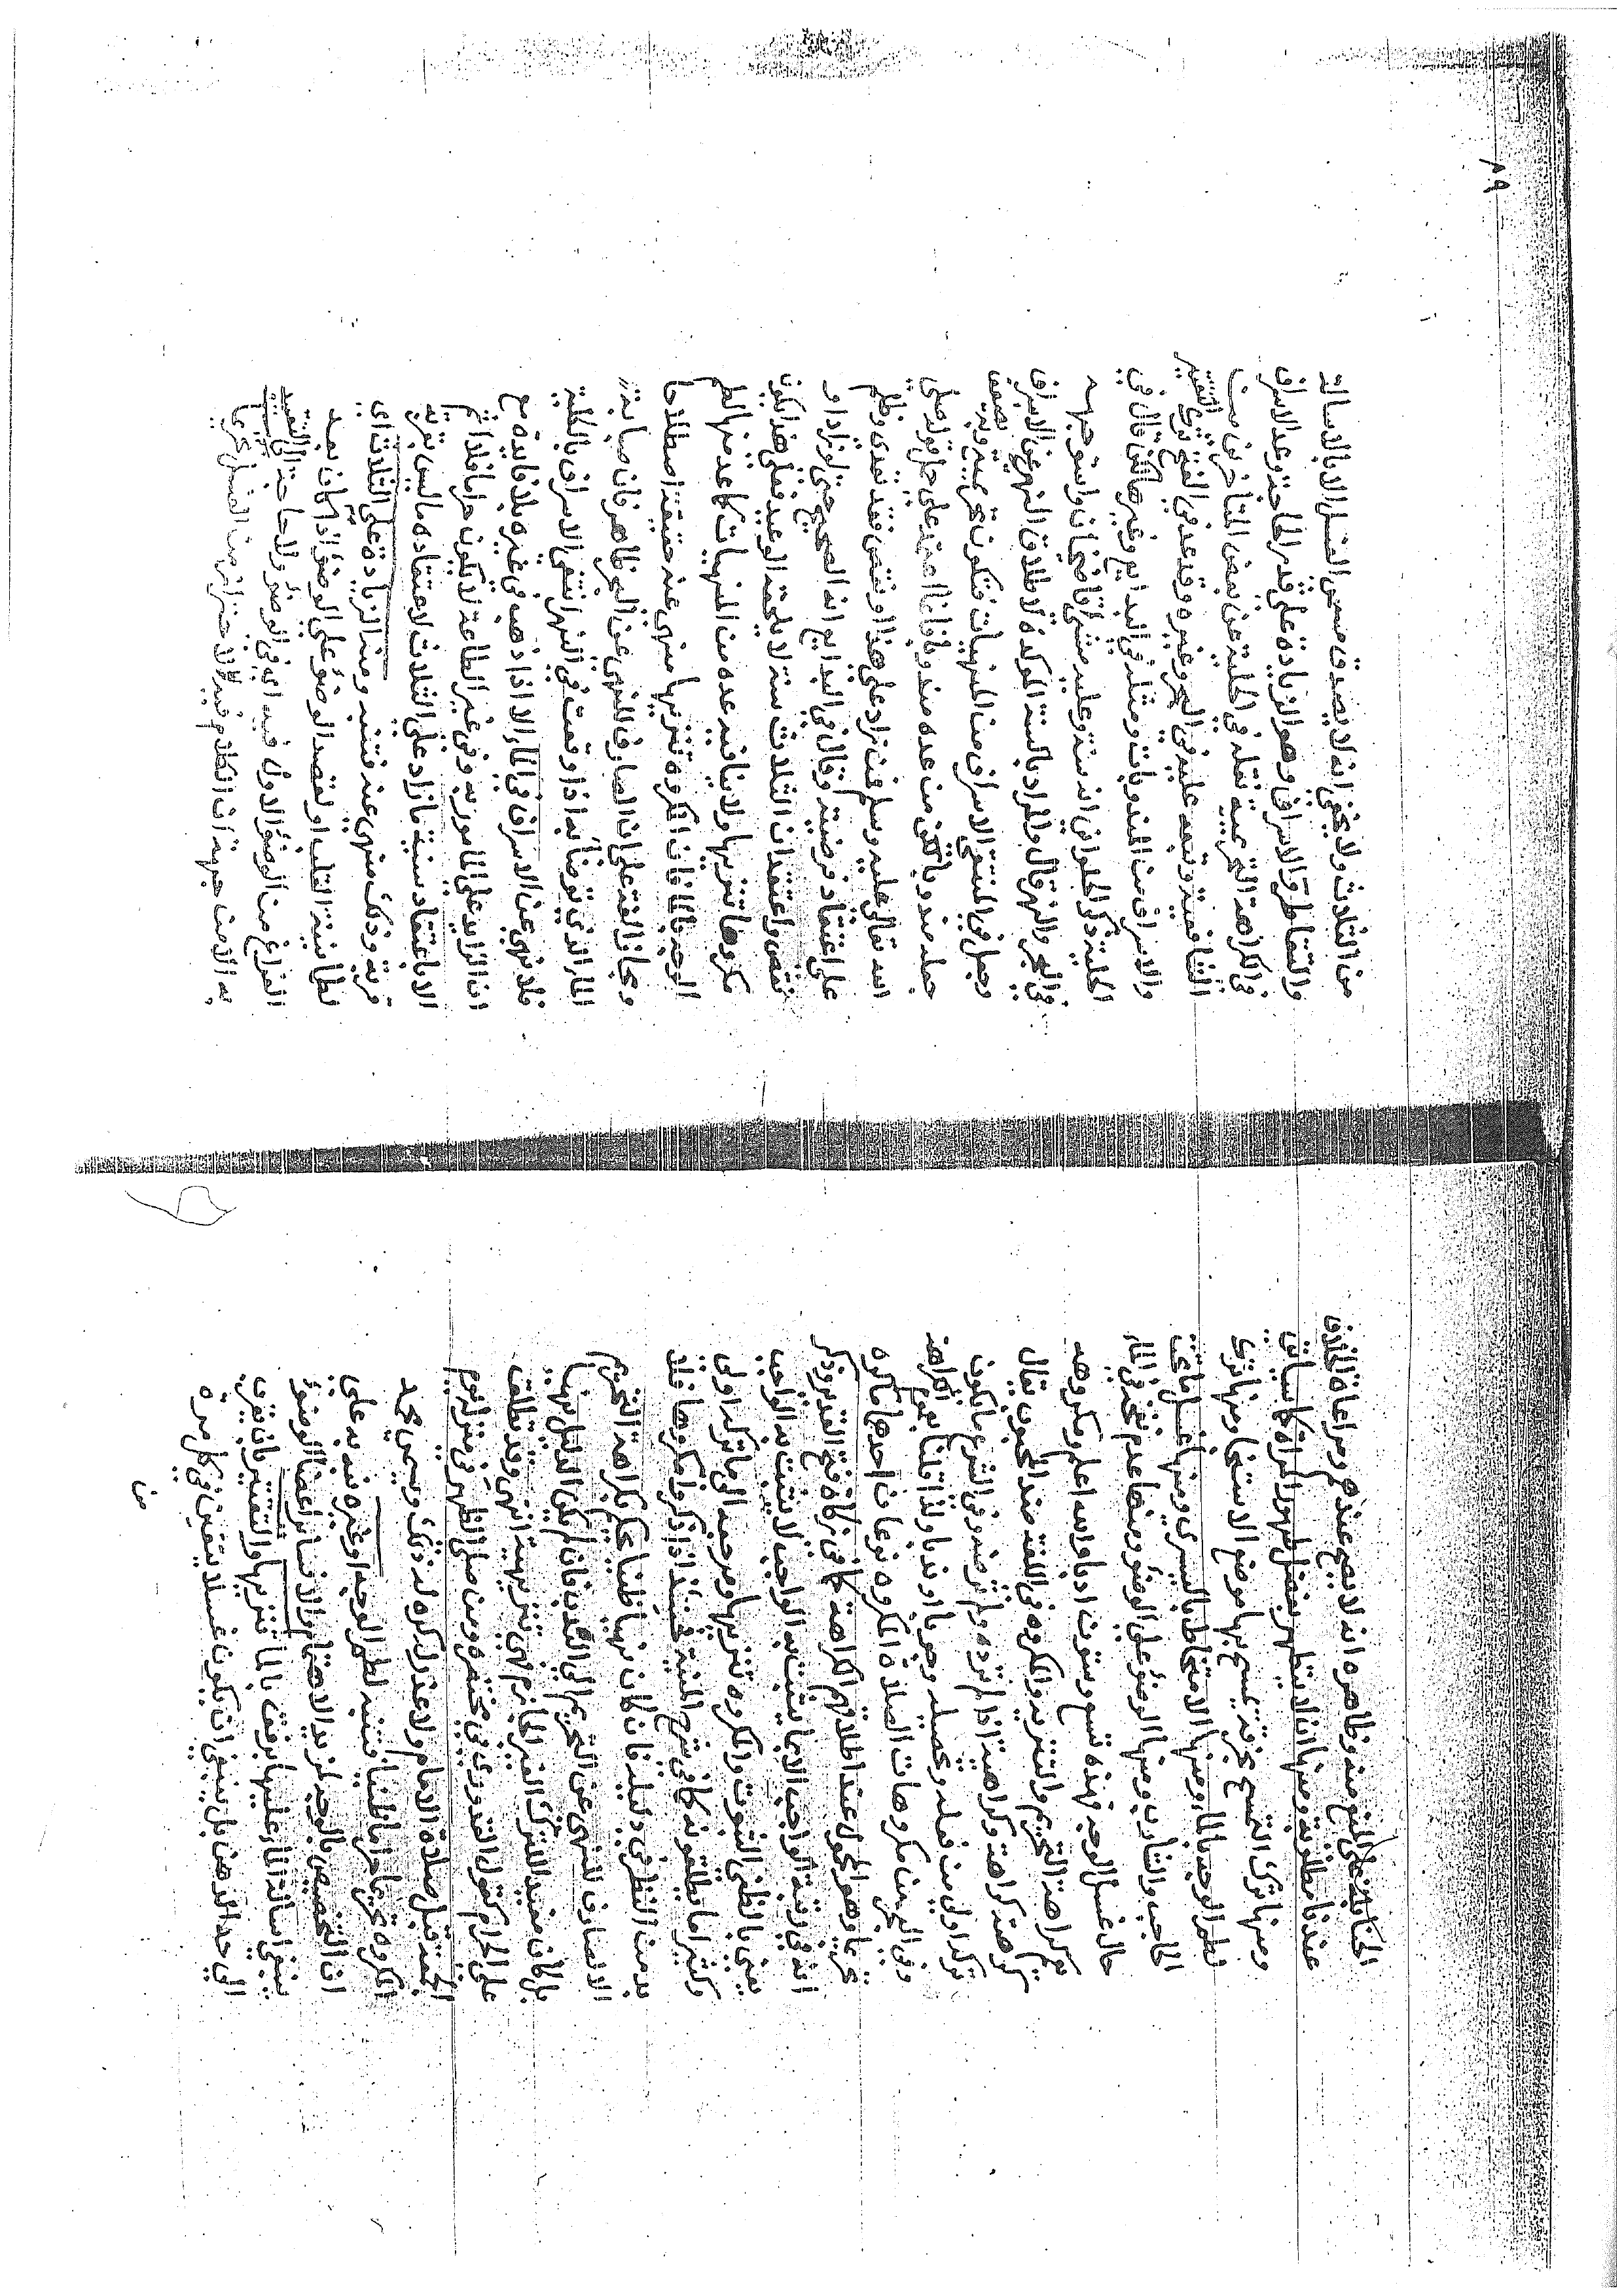 الحنابلة على المنع منه وظاهره انه لا يصح عندهم ومراعاة الخلاف
عندنا مطلوبة ومنها ان لا يتطهر بفضل طهور المراة كما سياتي
ومنها ترك التمسح بخرقة يمسح بها موضع الاستنجا ومنها ترك
لطم الوجه بالماء ومنها الامتخاط باليسرى ومنها غسل ما تحت
الحاجب والشارب ومنها الوضوء على الوضوء ومنها عدم نفخه في الماء
حال غسل الوجه فهذه تسع وستون ادبا والله اعلم ومكروهه
يعم كراهة التحريم والتنزيه والمكروه في اللغة ضد المحبوب يقال
كرهته كراهة وكراهية اذا لم ترده ولم ترضه وفي الشرع ما يكون
تركه اولى من فعله وتحصيله وجوبا او ندبا ولذا قلنا يعم كراهة
وفي البحر من مكروهات الصلاة المكروه نوعان احدهما ما كره
تحريما وهو المحمول عند اطلاقهم الكراهة كما في زكاة فتح القدير وذكر
انه في رتبة الواجب الا بما يثبت به الواجب لا يثبت به الواجب
يعني بالظني الثبوت والمكروه تنزيها ومرجعه الى ما تركه اولى
وكثيرا ما يطلقونه كما في شرح المنية فحينئذ اذا ذكروا مكروها فلا
بد من النظر في دليله فان كان نهيا ظنيا يحكم بكراهة التحريم
الا لصارف للنهي عن التحريم الى الندب فان لم يكن الدليل نهيا
بل كان مفيدا للترك الغير الجازم فهي تنزيهية انتهى وقد تطلق
على الحرام كقول القدوري في مختصره ومن صلى الظهر في منزله يوم
الجمعة قبل صلاة الامام ولا عذر له كره له ذلك ويسمى محمد
المكروه تحريما حراما ظنيا فتنبه لطم الوجه او غيره نبه على
ان التخصيص بالوجه لمزيد الاهتمام والا فسائر اعضاء الوضوء
ينبغي اسالة الماء عليها برفق بالماء تنزيها والتقتير بان يقرب
الى حد الدهن بل ينبغي ان يكون غسلا بيقين في كل مرة
من
٨٩
من الثلاث ولا يخفى انه لا يصدق مسمى الغسل الا بالاسالة
والتقاطر والاسراف وهو الزيادة على قدر الحاجة وعد الاسراف
في الكراهة التحريمية نقله في الحلية عن بعض المتأخرين من
الشافعية وتبعه عليه في البحر وغيره وقد عد في الفتح ترك التقتير
والاسراف من المندوبات ومثله في البدايع وغيرها لكن قال في
الحلية ذكر الحلواني انه سنة وعليه مشى قاضيخان واستوجهه
في البحر والنهر قال والمراد بالسنة المؤكدة لاطلاق النهي عن الاسراف
وجعل في المنتقى الاسراف من المنهيات فتكون تحريمية وبه يضعف
جعله مندوبا لكن من عده مندوبا بنا على حمل قوله صلى
الله تعالى عليه وسلم فمن زاد على هذا او نقص فقد تعدى وظلم
على اعتقاد فرضيته وقال في البدايع انه الصحيح حتى لو زاد او
نقص واعتقد ان الثلاث سنة لا يلحقه الوعيد فعلى هذا يكون
مكروها تنزيها ولا ينافيه عده من المنهيات كما عد منها لطم
الوجه بالماء فان المكروه تنزيها منهي عنه حقيقة اصطلاحا
ومجازا لغة على ان الصارف للنهي عن التحريم ظاهر فان ما بدية
الماء الذي يتوضأ به اذا وقعت في النهر انتفى الاسراف بالكلية
فلا نهي عن الاسراف في الماء الا اذا ذهب في غيره بلا فايدة مع
ان الزايد على المامور به وفي غير الطاعة لا يكون حراما فلا اثم
الا باعتقاد سنية ما زاد على الثلاث لاعتقاده ما ليس بقربة
قربة وذلك منهي عنه فتنبه ومنه الزيادة على الثلاث اي
لطمأنينة القلب او لقصد الوضوء على الوضوء اذا كان بعد
الفراغ من الوضوء الاول فيه اي في الوضوء ولا حاجة الى التقييد
به الا من جهة ان الكلام فيه للاحتراز من الغسل تحريما